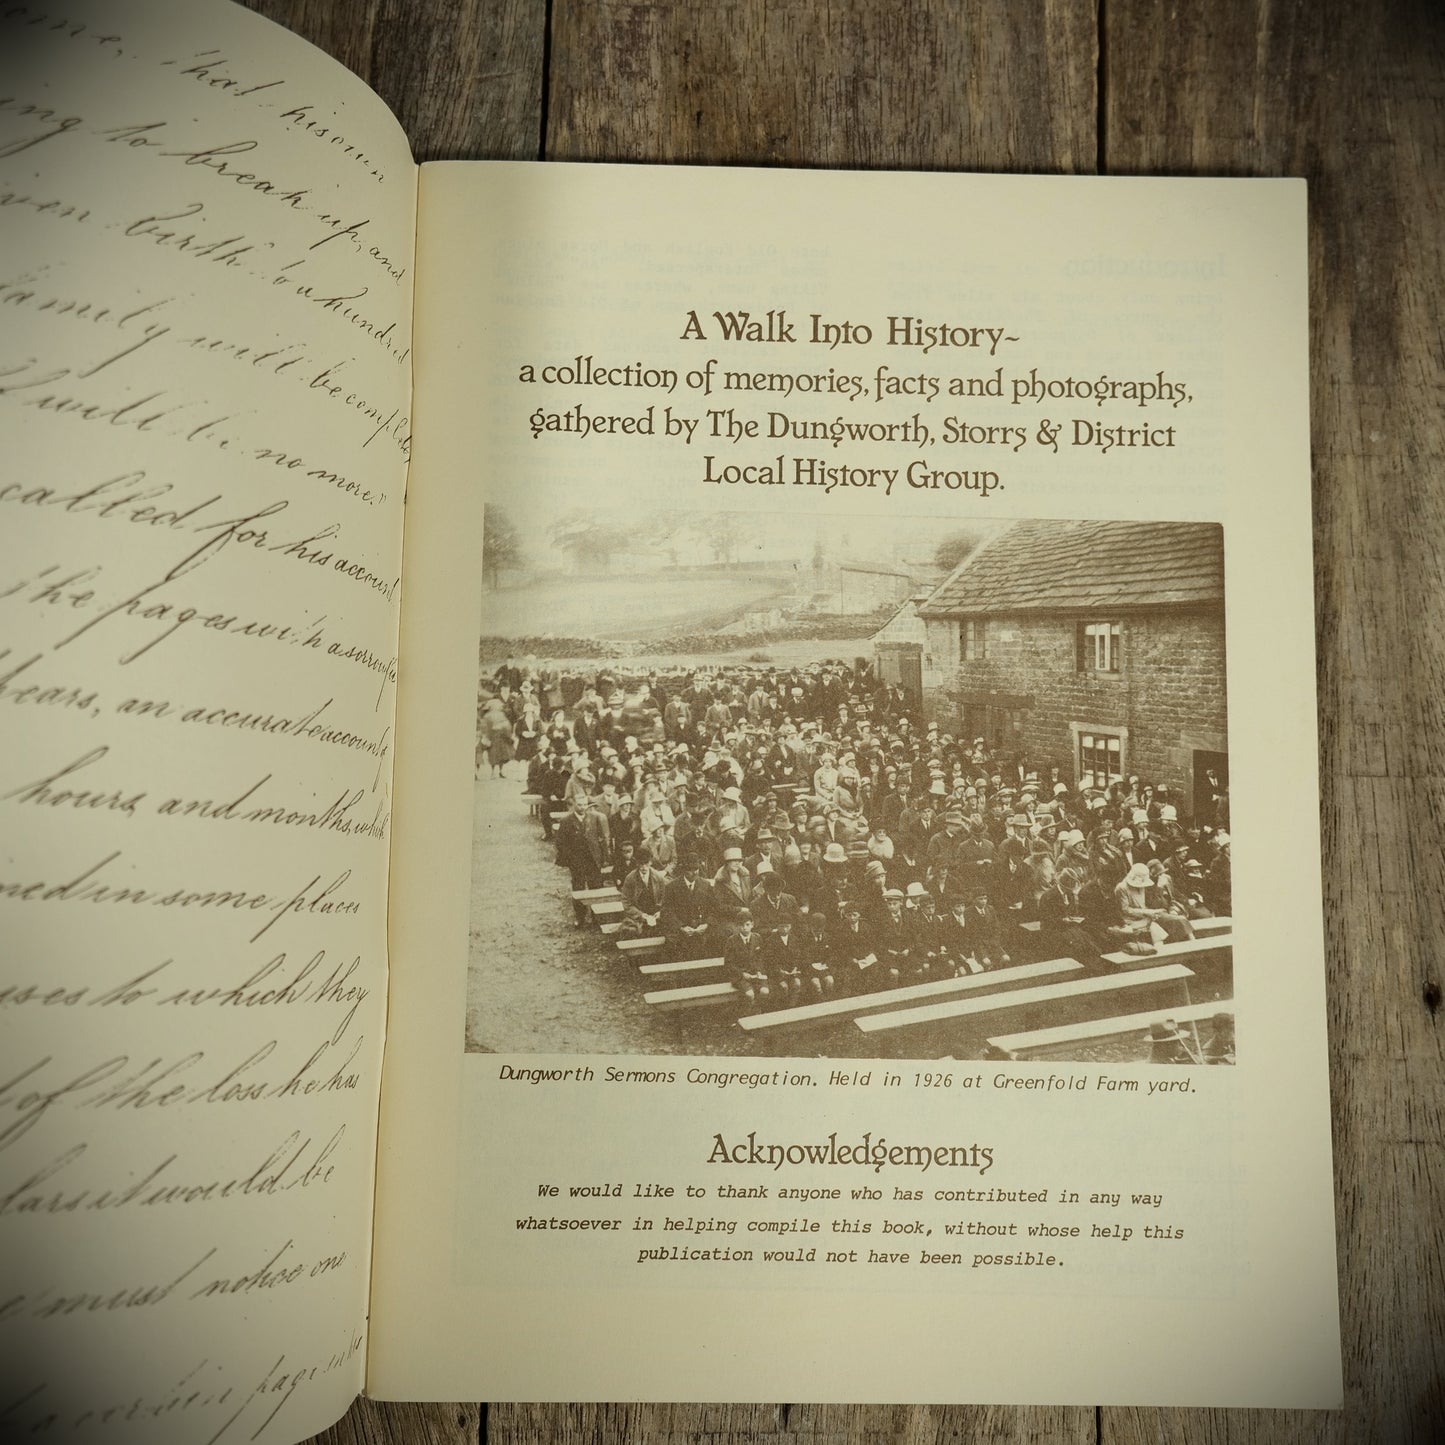 some, that hisown
ing to break up, and
iven birth to a hundred
family will be complete
will be no more."
called for his account
The pages with a sorrowful
hears, an accurate account of
hours and months, which
ned in some places
uses to which they
of the loss he has
lars it would be
must notice one
page in his
A Walk Into History~
a collection of memories, facts and photographs,
gathered by The Dungworth, Storrs & District
Local History Group.
Dungworth Sermons Congregation. Held in 1926 at Greenfold Farm yard.
Acknowledgements
We would like to thank anyone who has contributed in any way
whatsoever in helping compile this book, without whose help this
publication would not have been possible.